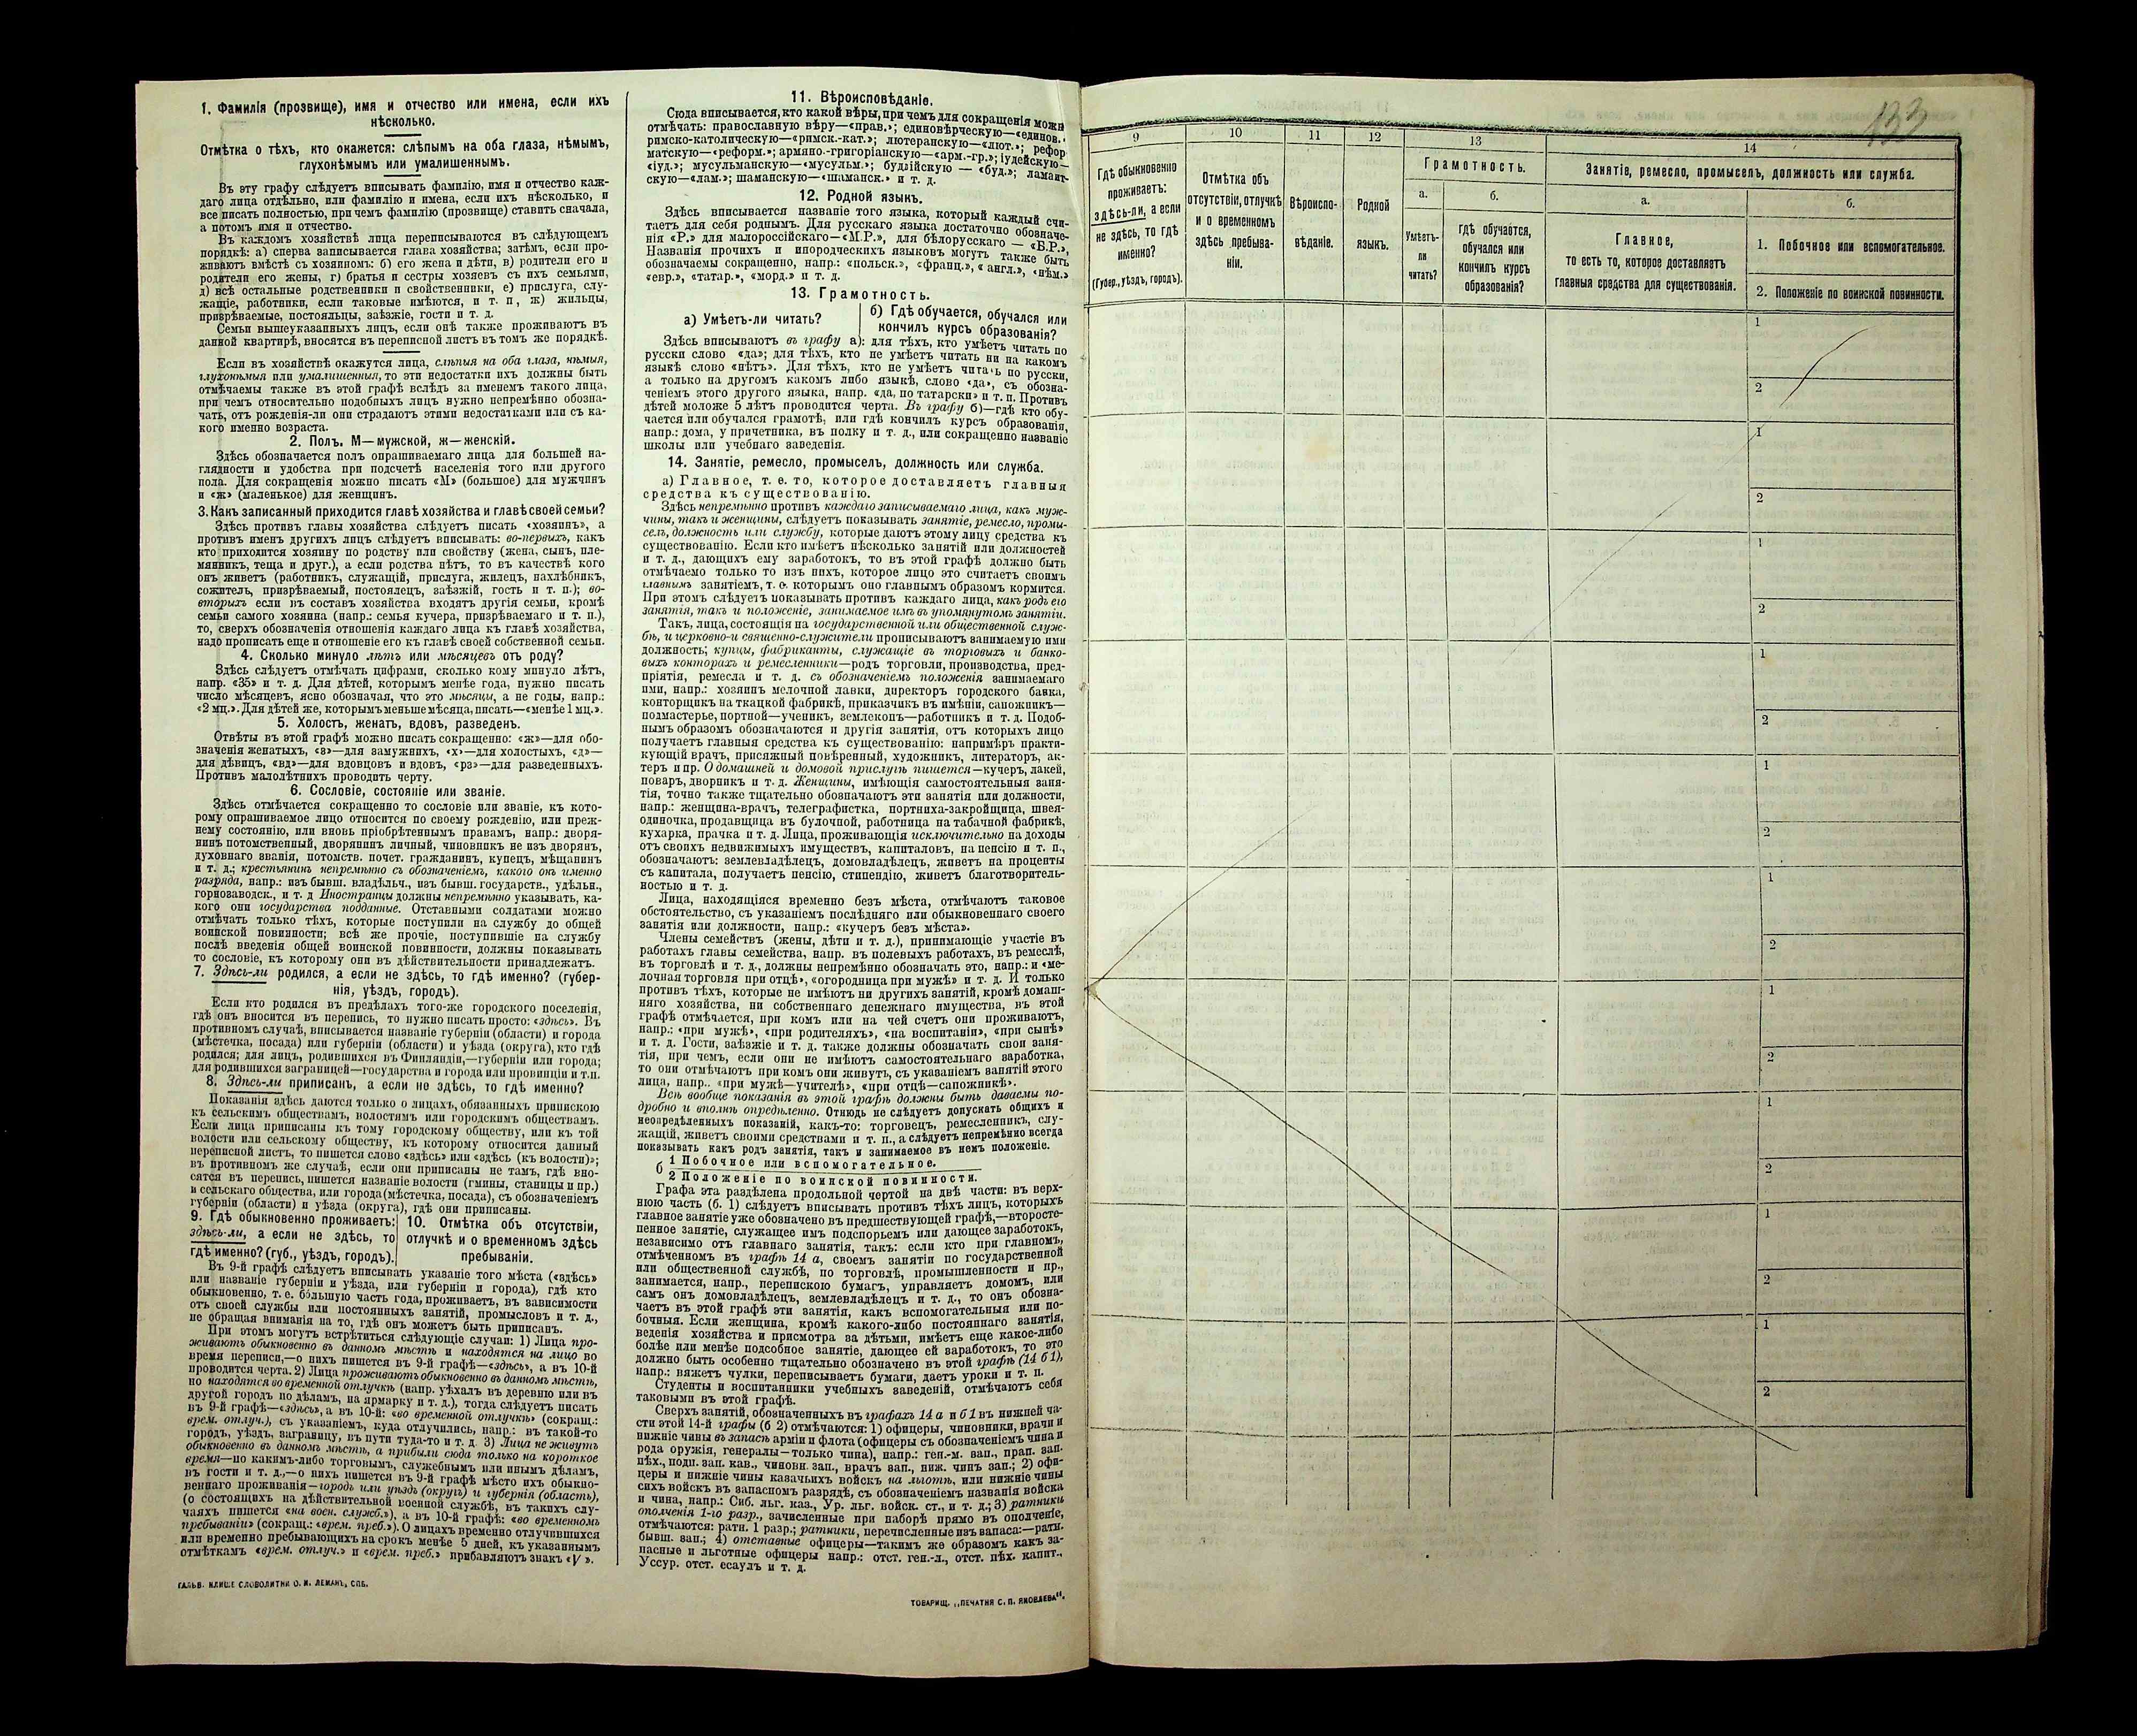 1. Фамилія (прозвище), имя и отчество или имена, если ихъ
нѣсколько.
Отмѣтка о тѣхъ, кто окажется: слѣпымъ на оба глаза, нѣмымъ,
глухонѣмымъ или умалишеннымъ.
Въ эту графу слѣдуетъ вписывать фамилію, имя и отчество каж-
даго лица отдѣльно, или фамилію и имена, если ихъ нѣсколько, и
все писать полностью, при чемъ фамилію (прозвище) ставить сначала,
а потомъ имя и отчество.
Въ каждомъ хозяйствѣ лица переписываются въ слѣдующемъ
порядкѣ: а) сперва записывается глава хозяйства; затѣмъ, если про-
живаютъ вмѣстѣ съ хозяиномъ: б) его жена и дѣти, в) родители его и
родители его жены, г) братья и сестры хозяевъ съ ихъ семьями,
д) всѣ остальные родственники и свойственники, е) прислуга, слу-
жащіе, работники, если таковые имѣются, и т. п, ж) жильцы,
призрѣваемые, постояльцы, заѣзжіе, гости и т. д.
Семьи вышеуказанныхъ лицъ, если онѣ также проживаютъ въ
данной квартирѣ, вносятся въ переписной листъ въ томъ же порядкѣ.
Если въ хозяйствѣ окажутся лица, слѣпыя на оба глаза, нѣмыя,
глухонѣмыя или умалишенныя, то эти недостатки ихъ должны быть
отмѣчаемы также въ этой графѣ вслѣдъ за именемъ такого лица,
при чемъ относительно подобныхъ лицъ нужно непремѣнно обозна-
чать, отъ рожденія-ли они страдаютъ этими недостатками или съ ка-
кого именно возраста.
2. Полъ. М—мужской, ж—женскій.
Здѣсь обозначается полъ опрашиваемаго лица для большей на-
глядности и удобства при подсчетѣ населенія того или другого
пола. Для сокращенія можно писать «М» (большое) для мужчинъ
и «ж» (маленькое) для женщинъ.
3. Какъ записанный приходится главѣ хозяйства и главѣ своей семьи?
Здѣсь противъ главы хозяйства слѣдуетъ писать «хозяинъ», а
противъ именъ другихъ лицъ слѣдуетъ вписывать: во-первыхъ, какъ
кто приходится хозяину по родству или свойству (жена, сынъ, пле-
мянникъ, теща и друг.), а если родства нѣтъ, то въ качествѣ кого
онъ живетъ (работникъ, служащій, прислуга, жилецъ, нахлѣбникъ,
сожитель, призрѣваемый, постоялецъ, заѣзжій, гость и т. п.); во-
вторыхъ если въ составъ хозяйства входятъ другія семьи, кромѣ
семьи самого хозяина (напр.: семья кучера, призрѣваемаго и т. п.),
то, сверхъ обозначенія отношенія каждаго лица къ главѣ хозяйства,
надо прописать еще и отношеніе его къ главѣ своей собственной семьи.
4. Сколько минуло лѣтъ или мѣсяцевъ отъ роду?
Здѣсь слѣдуетъ отмѣчать цифрами, сколько кому минуло лѣтъ,
напр. «35» и т. д. Для дѣтей, которымъ менѣе года, нужно писать
число мѣсяцевъ, ясно обозначая, что это мѣсяцы, а не годы, напр.:
«2 мц.». Для дѣтей же, которымъ меньше мѣсяца, писать—«менѣе 1 мц.».
5. Холостъ, женатъ, вдовъ, разведенъ.
Отвѣты въ этой графѣ можно писать сокращенно: «ж»—для обо-
значенія женатыхъ, «з»—для замужнихъ, «х»—для холостыхъ, «д»—
для дѣвицъ, «вд»—для вдовцовъ и вдовъ, «рз»—для разведенныхъ.
Противъ малолѣтнихъ проводить черту.
6. Сословіе, состояніе или званіе.
Здѣсь отмѣчается сокращенно то сословіе или званіе, къ кото-
рому опрашиваемое лицо относится по своему рожденію, или преж-
нему состоянію, или вновь пріобрѣтеннымъ правамъ, напр.: дворя-
нинъ потомственный, дворянинъ личный, чиновникъ не изъ дворянъ,
духовнаго званія, потомств. почет. гражданинъ, купецъ, мѣщанинъ
и т. д.; крестьянинъ непремѣнно съ обозначеніемъ, какого онъ именно
разряда, напр.: изъ бывш. владѣльч., изъ бывш. государств., удѣльн.,
горнозаводск., и т. д Иностранцы должны непремѣнно указывать, ка-
кого они государства подданные. Отставными солдатами можно
отмѣчать только тѣхъ, которые поступили на службу до общей
воинской повинности; всѣ же прочіе, поступившіе на службу
послѣ введенія общей воинской повинности, должны показывать
то сословіе, къ которому они въ дѣйствительности принадлежатъ.
7. Здѣсь-ли родился, а если не здѣсь, то гдѣ именно? (губер-
нія, уѣздъ, городъ).
Если кто родился въ предѣлахъ того-же городского поселенія,
гдѣ онъ вносится въ перепись, то нужно писать просто: «здѣсь». Въ
противномъ случаѣ, вписывается названіе губерніи (области) и города
(мѣстечка, посада) или губерніи (области) и уѣзда (округа), кто гдѣ
родился; для лицъ, родившихся въ Финляндіи,—губерніи или города;
для родившихся заграницей—государства и города или провинціи и т.п.
8. Здѣсь-ли приписанъ, а если не здѣсь, то гдѣ именно?
Показанія здѣсь даются только о лицахъ, обязанныхъ припискою
къ сельскимъ обществамъ, волостямъ или городскимъ обществамъ.
Если лица приписаны къ тому городскому обществу, или къ той
волости или сельскому обществу, къ которому относится данный
переписной листъ, то пишется слово «здѣсь» или «здѣсь (къ волости)»;
въ противномъ же случаѣ, если они приписаны не тамъ, гдѣ вно-
сятся въ перепись, пишется названіе волости (гмины, станицы и пр.)
и сельскаго общества, или города (мѣстечка, посада), съ обозначеніемъ
губерніи (области) и уѣзда (округа), гдѣ они приписаны.
9. Гдѣ обыкновенно проживаетъ:
здѣсь-ли, а если не здѣсь, то
гдѣ именно? (губ., уѣздъ, городъ).
10. Отмѣтка объ отсутствіи,
отлучкѣ и о временномъ здѣсь
пребываніи.
Въ 9-й графѣ слѣдуетъ вписывать указаніе того мѣста («здѣсь»
или названіе губерніи и уѣзда, или губерніи и города), гдѣ кто
обыкновенно, т. е. большую часть года, проживаетъ, въ зависимости
отъ своей службы или постоянныхъ занятій, промысловъ и т. д.,
не обращая вниманія на то, гдѣ онъ можетъ быть приписанъ.
При этомъ могутъ встрѣтиться слѣдующіе случаи: 1) Лица про-
живаютъ обыкновенно въ данномъ мѣстѣ и находятся на лицо во
время переписи,—о нихъ пишется въ 9-й графѣ—«здѣсь», а въ 10-й
проводится черта. 2) Лица проживаютъ обыкновенно въ данномъ мѣстѣ,
но находятся во временной отлучкѣ (напр. уѣхалъ въ деревню или въ
другой городъ по дѣламъ, на ярмарку и т. д.), тогда слѣдуетъ писать
въ 9-й графѣ—«здѣсь», а въ 10-й: «во временной отлучкѣ» (сокращ.:
врем. отлуч.), съ указаніемъ, куда отлучились, напр.: въ такой-то
городъ, уѣздъ, заграницу, въ пути туда-то и т. д. 3) Лица не живутъ
обыкновенно въ данномъ мѣстѣ, а прибыли сюда только на короткое
время—по какимъ-либо торговымъ, служебнымъ или инымъ дѣламъ,
въ гости и т. д.,—о нихъ пишется въ 9-й графѣ мѣсто ихъ обыкно-
веннаго проживанія—городъ или уѣздъ (округъ) и губернія (область),
(о состоящихъ на дѣйствительной военной службѣ, въ такихъ слу-
чаяхъ пишется «на воен. служб.»), а въ 10-й графѣ: «во временномъ
пребываніи» (сокращ.: «врем. преб.»). О лицахъ временно отлучившихся
или временно пребывающихъ на срокъ менѣе 5 дней, къ указаннымъ
отмѣткамъ «врем. отлуч.» и «врем. преб.» прибавляютъ знакъ «V».
ГАЛЬВ. КЛИШЕ СЛОВОЛИТНИ О. И. ЛЕМАНЪ, СПБ.
11. Вѣроисповѣданіе.
Сюда вписывается, кто какой вѣры, при чемъ для сокращенія можн
отмѣчать: православную вѣру—«прав.»; единовѣрческую—«единов.»
римско-католическую—«римск.-кат.»; лютеранскую—«лют.»; рефор
матскую—«реформ.»; армяно.-григоріанскую—«арм.-гр.»; іудейскую—
«іуд.»; мусульманскую—«мусульм.»; буддійскую — «буд.»; ламаит-
скую—«лам.»; шаманскую—«шаманск.» и т. д.
12. Родной языкъ.
Здѣсь вписывается названіе того языка, который каждый счи-
таетъ для себя роднымъ. Для русскаго языка достаточно обозначе-
нія «Р.» для малороссійскаго—«М.Р.», для бѣлорусскаго — «Б.Р.»,
Названія прочихъ и инородческихъ языковъ могутъ также быть
обозначаемы сокращенно, напр.: «польск.», «франц.», «англ.», «нѣм.»
«евр.», «татар.», «морд.» и т. д.
13. Грамотность.
а) Умѣетъ-ли читать?
б) Гдѣ обучается, обучался или
кончилъ курсъ образованія?
Здѣсь вписываютъ въ графу а): для тѣхъ, кто умѣетъ читать по
русски слово «да»; для тѣхъ, кто не умѣетъ читать ни на какомъ
языкѣ слово «нѣтъ». Для тѣхъ, кто не умѣетъ читать по русски,
а только на другомъ какомъ либо языкѣ, слово «да», съ обозна-
ченіемъ этого другого языка, напр. «да, по татарски» и т. п. Противъ
дѣтей моложе 5 лѣтъ проводится черта. Въ графу б)—гдѣ кто обу-
чается или обучался грамотѣ, или гдѣ кончилъ курсъ образованія,
напр.: дома, у причетника, въ полку и т. д., или сокращенно названіе
школы или учебнаго заведенія.
14. Занятіе, ремесло, промыселъ, должность или служба.
а) Главное, т. е. то, которое доставляетъ главныя
средства къ существованію.
Здѣсь непремѣнно противъ каждаго записываемаго лица, какъ муж-
чины, такъ и женщины, слѣдуетъ показывать занятіе, ремесло, промы-
селъ, должность или службу, которые даютъ этому лицу средства къ
существованію. Если кто имѣетъ нѣсколько занятій или должностей
и т. д., дающихъ ему заработокъ, то въ этой графѣ должно быть
отмѣчаемо только то изъ нихъ, которое лицо это считаетъ своимъ
главнымъ занятіемъ, т. е. которымъ оно главнымъ образомъ кормится.
При этомъ слѣдуетъ показывать противъ каждаго лица, какъ родъ его
занятія, такъ и положеніе, занимаемое имъ въ упомянутомъ занятіи.
Такъ, лица, состоящія на государственной или общественной служ-
бѣ, и церковно-и священно-служители прописываютъ занимаемую ими
должность; купцы, фабриканты, служащіе въ торговыхъ и банко-
выхъ конторахъ и ремесленники—родъ торговли, производства, пред-
пріятія, ремесла и т. д. съ обозначеніемъ положенія занимаемаго
ими, напр.: хозяинъ мелочной лавки, директоръ городского банка,
конторщикъ на ткацкой фабрикѣ, приказчикъ въ имѣніи, сапожникъ—
подмастерье, портной—ученикъ, землекопъ—работникъ и т. д. Подоб-
нымъ образомъ обозначаются и другія занятія, отъ которыхъ лицо
получаетъ главныя средства къ существованію: напримѣръ практи-
кующій врачъ, присяжный повѣренный, художникъ, литераторъ, ак-
теръ и пр. О домашней и домовой прислугѣ пишется—кучеръ, лакей,
поваръ, дворникъ и т. д. Женщины, имѣющія самостоятельныя заня-
тія, точно также тщательно обозначаютъ эти занятія или должности,
напр.: женщина-врачъ, телеграфистка, портниха-закройщица, швея-
одиночка, продавщица въ булочной, работница на табачной фабрикѣ,
кухарка, прачка и т. д. Лица, проживающія исключительно на доходы
отъ своихъ недвижимыхъ имуществъ, капиталовъ, на пенсію и т. п.,
обозначаютъ: землевладѣлецъ, домовладѣлецъ, живетъ на проценты
съ капитала, получаетъ пенсію, стипендію, живетъ благотворитель-
ностью и т. д.
Лица, находящіяся временно безъ мѣста, отмѣчаютъ таковое
обстоятельство, съ указаніемъ послѣдняго или обыкновеннаго своего
занятія или должности, напр.: «кучеръ безъ мѣста».
Члены семействъ (жены, дѣти и т. д.), принимающіе участіе въ
работахъ главы семейства, напр. въ полевыхъ работахъ, въ ремеслѣ,
въ торговлѣ и т. д., должны непремѣнно обозначать это, напр.: и «ме-
лочная торговля при отцѣ», «огородница при мужѣ» и т. д. И только
противъ тѣхъ, которые не имѣютъ ни другихъ занятій, кромѣ домаш-
няго хозяйства, ни собственнаго денежнаго имущества, въ этой
графѣ отмѣчается, при комъ или на чей счетъ они проживаютъ,
напр.: «при мужѣ», «при родителяхъ», «на воспитаніи», «при сынѣ»
и т. д. Гости, заѣзжіе и т. д. также должны обозначать свои заня-
тія, при чемъ, если они не имѣютъ самостоятельнаго заработка,
то они отмѣчаютъ при комъ они живутъ, съ указаніемъ занятій этого
лица, напр.. «при мужѣ—учителѣ», «при отцѣ—сапожникѣ».
Всѣ вообще показанія въ этой графѣ должны быть даваемы по-
дробно и вполнѣ опредѣленно. Отнюдь не слѣдуетъ допускать общихъ и
неопредѣленныхъ показаній, какъ-то: торговецъ, ремесленникъ, слу-
жащій, живетъ своими средствами и т. п., а слѣдуетъ непремѣнно всегда
показывать какъ родъ занятія, такъ и занимаемое въ немъ положеніе.
б 1 Побочное или вспомогательное.
2 Положеніе по воинской повинности.
Графа эта раздѣлена продольной чертой на двѣ части: въ верх-
нюю часть (б. 1) слѣдуетъ вписывать противъ тѣхъ лицъ, которыхъ
главное занятіе уже обозначено въ предшествующей графѣ,—второсте-
пенное занятіе, служащее имъ подспорьемъ или дающее заработокъ,
независимо отъ главнаго занятія, такъ: если кто при главномъ,
отмѣченномъ въ графѣ 14 а, своемъ занятіи по государственной
или общественной службѣ, по торговлѣ, промышленности и пр.,
занимается, напр., перепискою бумагъ, управляетъ домомъ, или
самъ онъ домовладѣлецъ, землевладѣлецъ и т. д., то онъ обозна-
чаетъ въ этой графѣ эти занятія, какъ вспомогательныя или по-
бочныя. Если женщина, кромѣ какого-либо постояннаго занятія,
веденія хозяйства и присмотра за дѣтьми, имѣетъ еще какое-либо
болѣе или менѣе подсобное занятіе, дающее ей заработокъ, то это
должно быть особенно тщательно обозначено въ этой графѣ (14 б 1),
напр.: вяжетъ чулки, переписываетъ бумаги, даетъ уроки и т. п.
Студенты и воспитанники учебныхъ заведеній, отмѣчаютъ себя
таковыми въ этой графѣ.
Сверхъ занятій, обозначенныхъ въ графахъ 14 а и б 1 въ нижней ча-
сти этой 14-й графы (б 2) отмѣчаются: 1) офицеры, чиновники, врачи и
нижніе чины въ запасѣ арміи и флота (офицеры съ обозначеніемъ чина и
рода оружія, генералы—только чина), напр.: ген.-м. зап., прап. зап.
пѣх., подп. зап. кав., чиновн. зап., врачъ зап., ниж. чинъ зап.; 2) офи-
церы и нижніе чины казачьихъ войскъ на льготѣ, или нижніе чины
сихъ войскъ въ запасномъ разрядѣ, съ обозначеніемъ названія войска
и чина, напр.: Сиб. льг. каз., Ур. льг. войск. ст., и т. д.; 3) ратники
ополченія 1-го разр., зачисленные при наборѣ прямо въ ополченіе,
отмѣчаются: ратн. 1 разр.; ратники, перечисленные изъ запаса:—ратн.
бывш. зап.; 4) отставные офицеры—такимъ же образомъ какъ за-
пасные и льготные офицеры напр.: отст. ген.-л., отст. пѣх. капит.,
Уссур. отст. есаулъ и т. д.
ТОВАРИЩ. „ПЕЧАТНЯ С. П. ЯКОВЛЕВА“.
133
9
10
11
12
13
14
Гдѣ обыкновенно
проживаетъ:
здѣсь-ли, а если
не здѣсь, то гдѣ
именно?
(Губер., уѣздъ, городъ).
Отмѣтка объ
отсутствіи, отлучкѣ
и о временномъ
здѣсь пребыва-
ніи.
Вѣроиспо-
вѣданіе.
Родной
языкъ.
Грамотность.
а.
Умѣетъ-
ли
читать?
б.
гдѣ обучается,
обучался или
кончилъ курсъ
образованія?
Занятіе, ремесло, промыселъ, должность или служба.
а.
Главное,
то есть то, которое доставляетъ
главныя средства для существованія.
б.
1. Побочное или вспомогательное.
2. Положеніе по воинской повинности.
1
2
1
2
1
2
1
2
1
2
1
2
1
2
1
2
1
2
1
2